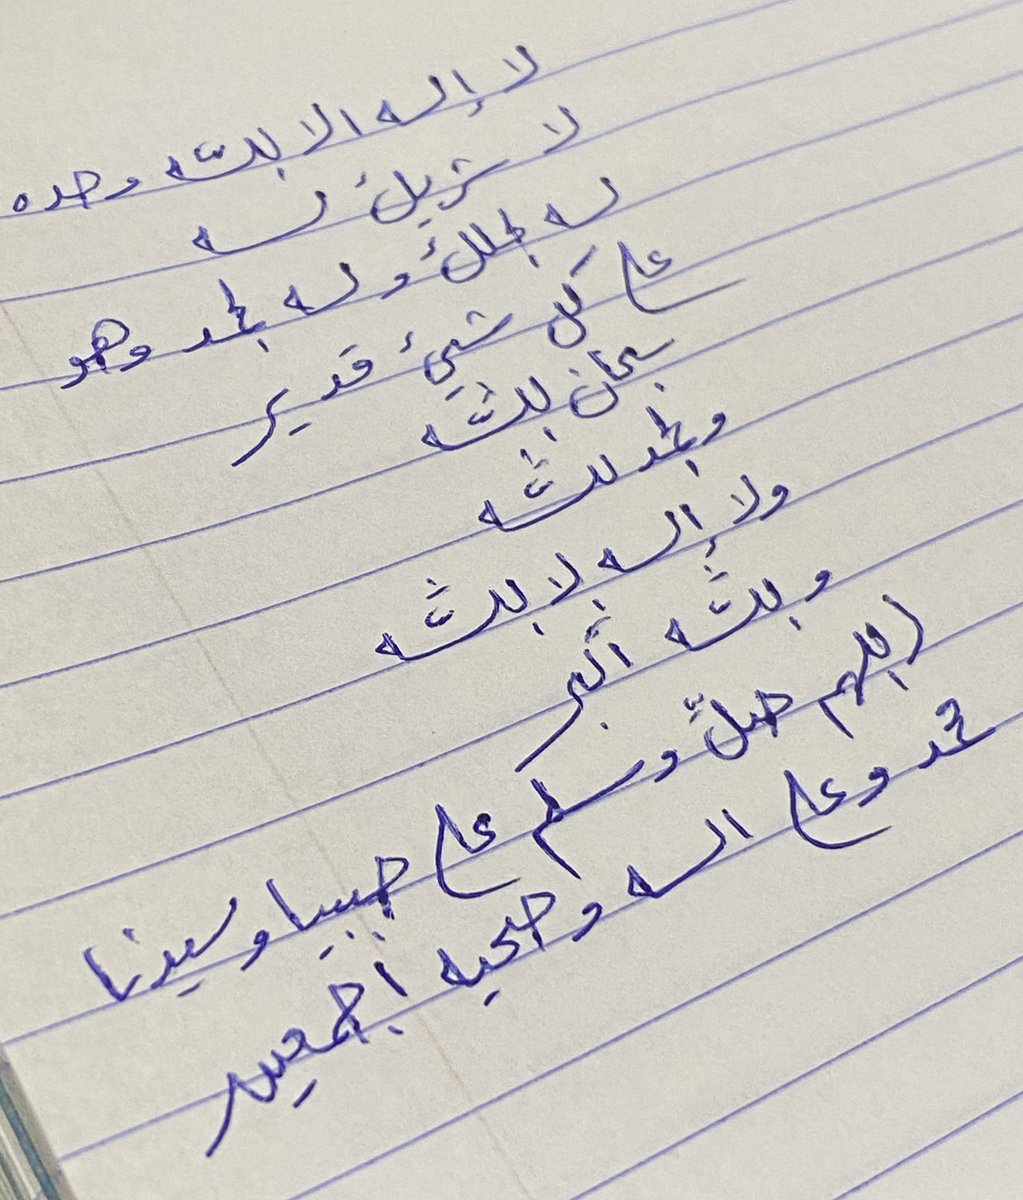 لا إله الا الله وحده
لا شريك له
له الملك وله الحمد وهو
على كل شيء قدير
سبحان الله
والحمد لله
ولا إله إلا الله
و الله أكبر
اللهم صلّ وسلم على حبيبنا وسيدنا
محمد وعلى اله وصحبه أجمعين